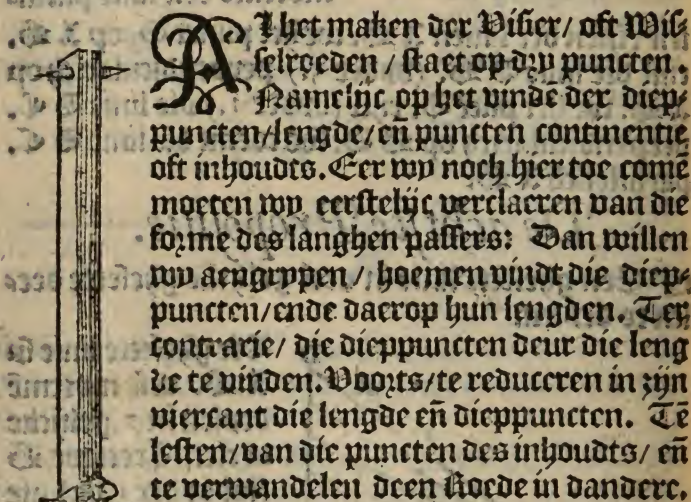 Al het maken der Visier/ oft Wis⸗
selroeden / staet op dry puncten.
Namelijc op het vindē der diep⸗
puncten/lengde/eñ puncten continentie
oft inhoudts. Eer wy noch hier toe comē
moeten wy eerstelijc verclaeren van die
forme des langhen passers: Dan willen
wy aengrypen / hoemen vindt die diep⸗
puncten/ende daerop hun lengden. Ter
contrarie/ die dieppuncten deur die leng
de te vinden. Voorts/te reduceren in zijn
viercant die lengde eñ dieppuncten. Tē
lesten/van die puncten des inhoudts/ eñ
te verwandelen deen Roede in dandere.